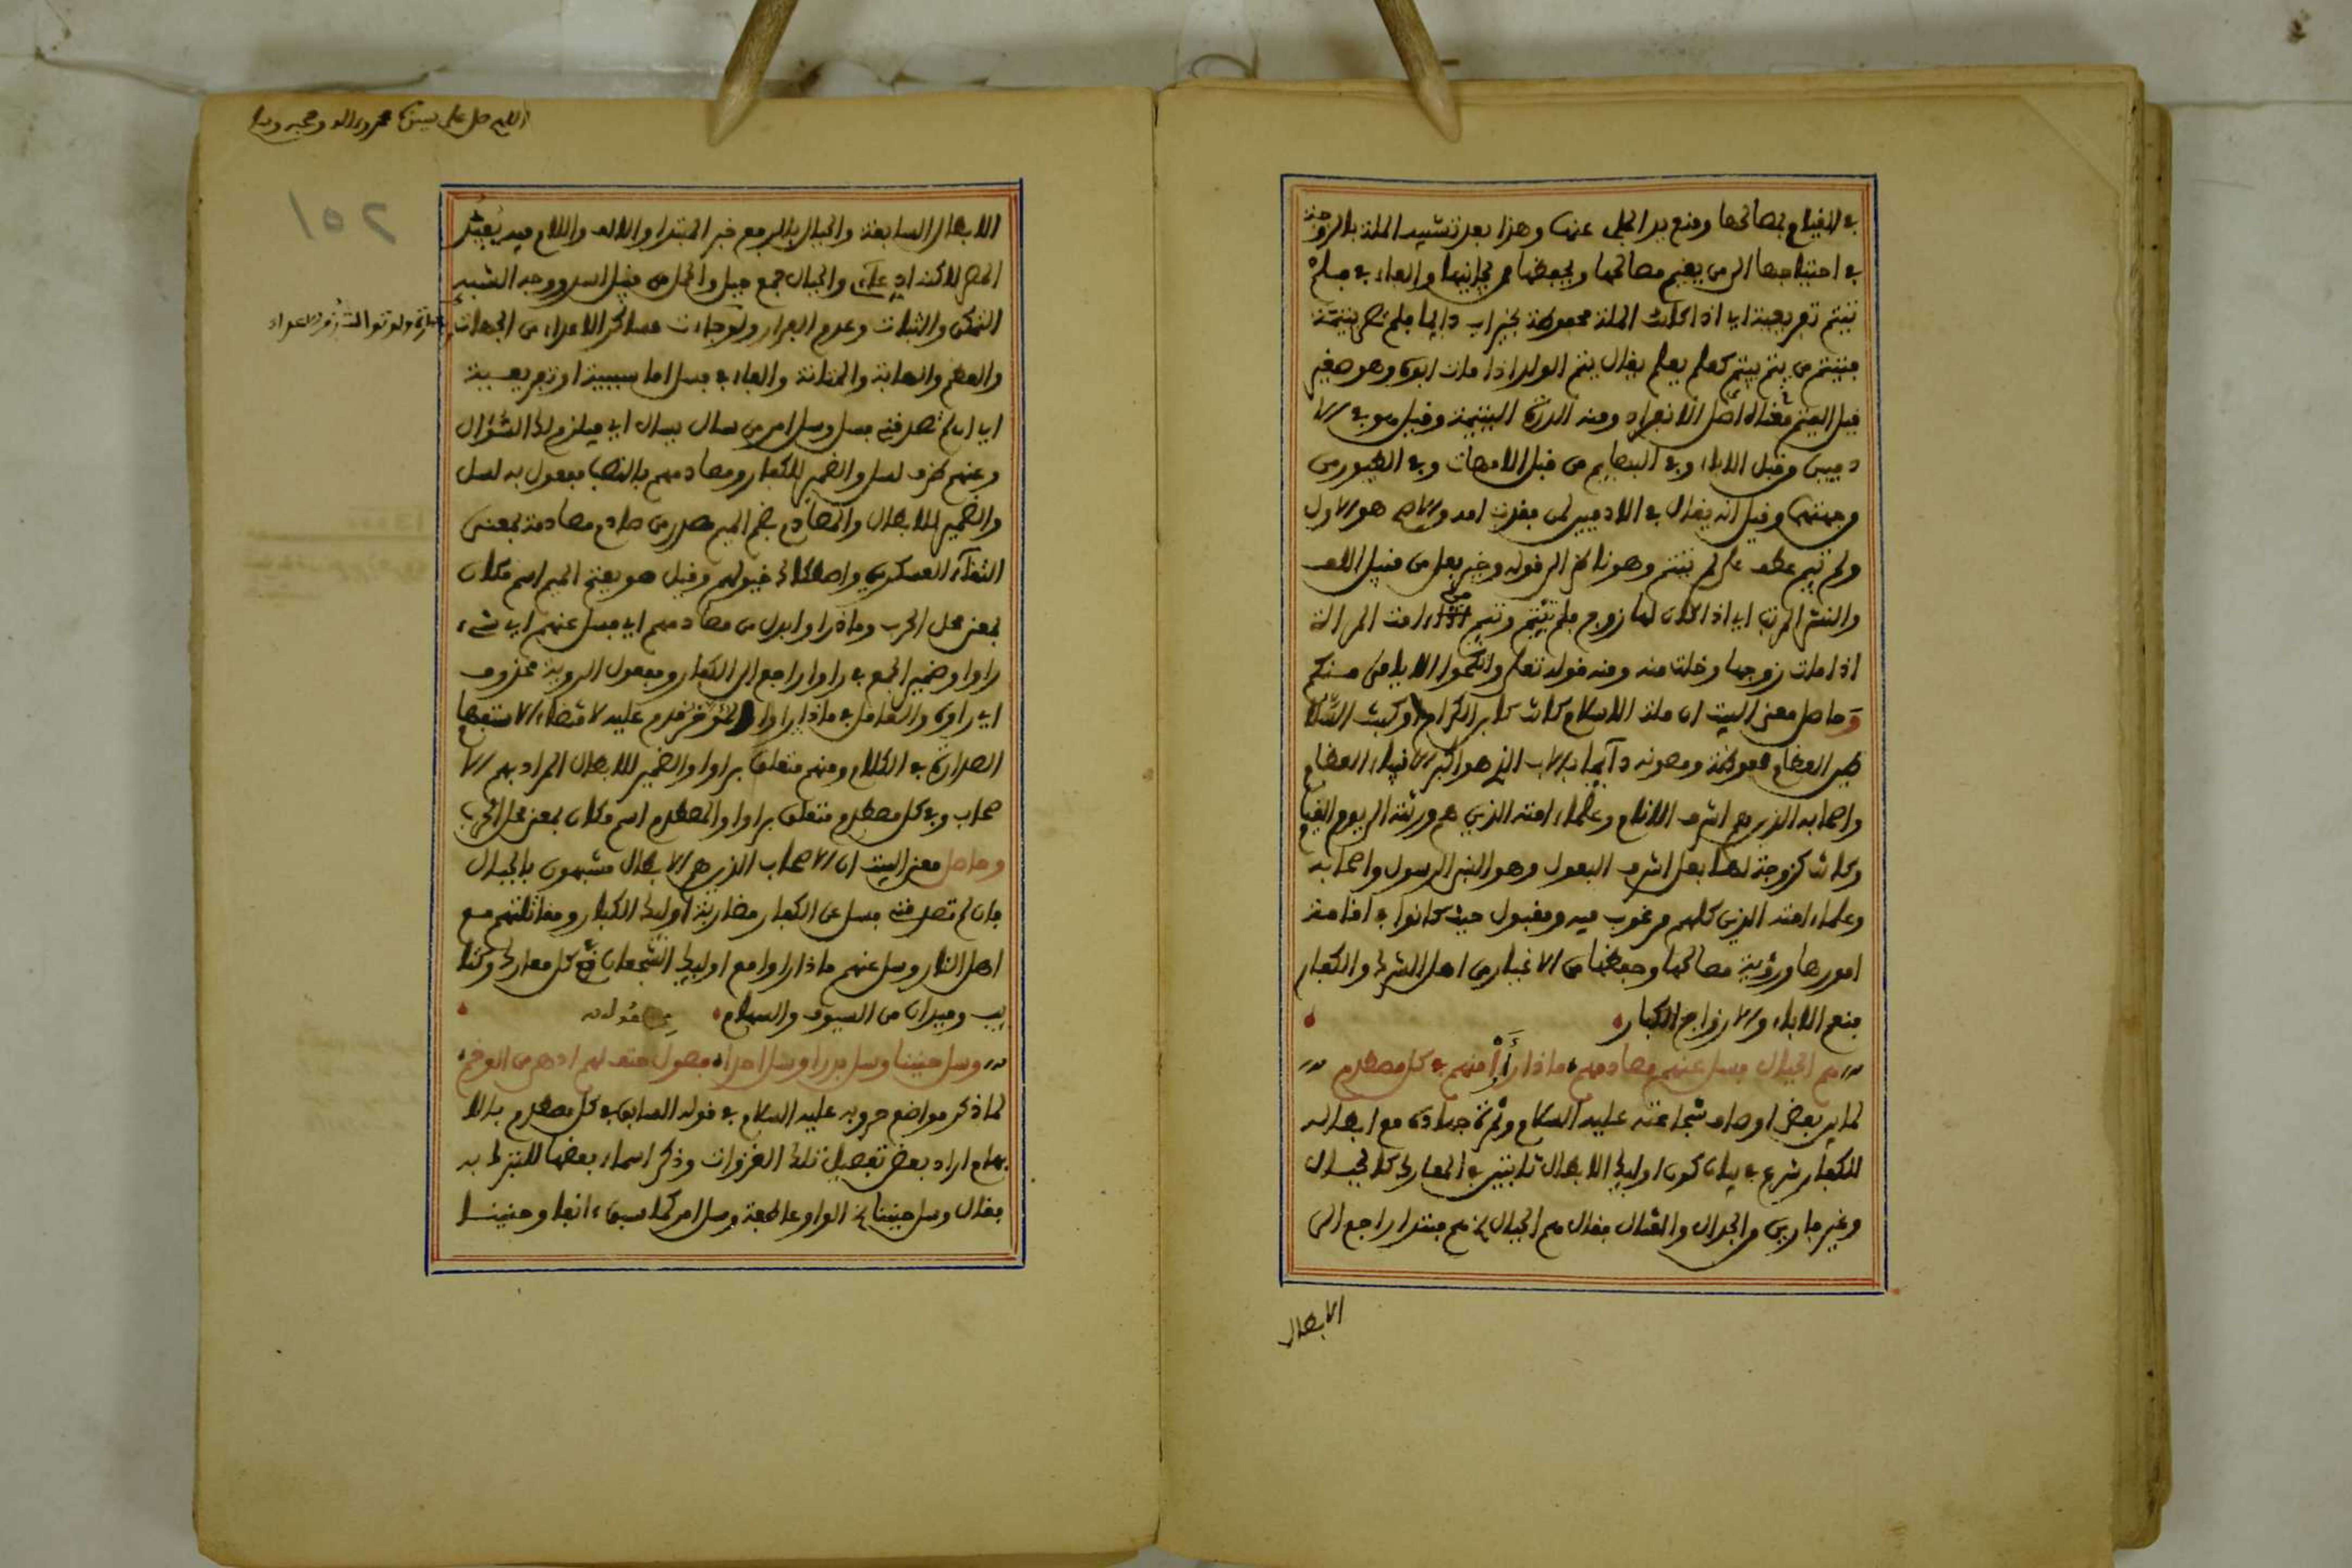 في القيام بمصالحها ومنع يد الجلي عنها وهذا بعد تشبيه الملة بالزوجة
في احتياجها الى من يقيم مصالحها ويحفظها من يجانبها والفاء في فلم
تيتم تفريعية اي اذا كانت الملة محفوظة بخير اب دايما فلم تصر يتيمة
فتيتم من يتم ييتم كعلم يعلم يقال يتم الولد اذا مات ابوه وهو صغير
قيل اليتم معناه اصل الانفراد ومنه الدرة اليتيمة وقيل هو في الا
دميين من قبل الاباء وفي البهايم من قبل الامهات وفي الطيور من
وجهتهما وقيل انه يقال في الادميين لمن فقدت امه والاصح هو الاول
ولم تيم عطف على لم تيتم وهو ناظر الى قوله وخير بعل من قبيل اللف
والنشر المرتب اي اذا كان لها زوج فلم تيتم وتيم من امت المراة
اذا مات زوجها وخلت منه ومنه قوله تعلى وانكحوا الايامى منكم
وحاصل معنى البيت ان ملة الاسلام كانت كابر الكرام وكبنت
خير العظام محفوظة ومصونة دائما بالاب الذي هو اكبر الانبياء العظام
واصحابه الذين هم اشرف الانام وعلماء امته الذين هم ورثته الى يوم القيام
وكانت كزوجة لها بعل اشرف البعول وهو النبي الرسول واصحابه
وعلماء امته الذين كلهم مرغوب فيه ومقبول حيث كانوا في اقامة
امورها ورؤية مصالحها وحفظها من الاغيار من اهل الشرك والكفار
فنعم الاباء والازواج الكبار
هم الجبال فسل عنهم مصادمهم ماذا رأى منهم في كل مصطدم
لما بين بعض اوصاف شجاعته عليه السلام وثمرة جهاده مع ابطاله
للكفار شرع في بيان كون اوليك الابطال ثابتين في المعارك كالجبال
وغير فارين من الجدال والقتال فقال هم الجبال الخ هم مبتدا راجع الى
الابطال
اللهم صل على سيدنا محمد واله وصحبه وسلم
251
الابطال السابقة والجبال بالرفع خبر المبتدا والالف واللام فيه يفيد
الحصر لاكنه ادعاءي والجبال جمع جبل والحمل من قبيل اسد ووجه الشبه
التمكن والثبات وعدم الفرار ولو جاءت عساكر الاعداء من الجهات
والعظم والمهابة والمتانة والفاء في فسل اما سببية او تفريعية
اي ان لم تصدقني فسل وسل امر من سال يسال اي فيلزم لك السؤال
وعنهم ظرف لسل والضمير للكفار ومصادمهم بالنصب مفعول به لسل
والضمير للابطال والمصادم بضم الميم مصدر من صادم مصادمة بمعنى
التقاء العسكرين واصطكاك خيولهم وقيل هو بفتح الميم اسم مكان
بمعنى محل الحرب وماذا راوا بدل من مصادمهم اي فسل عنهم اي شيء
راوا وضمير الجمع في راوا راجع الى الكفار ومفعول الروية محذوف
اي راوه والعامل في ماذا راوا المؤخر قدم عليه لاقتضاء الاستفهام
الصدارة في الكلام ومنهم متعلق براوا والضمير للابطال المراد بهم الا
صحاب وفي كل مصطدم متعلق براوا والمصطدم اسم مكان بمعنى محل الحرب
وحاصل معنى البيت ان الاصحاب الذين هم الابطال مشبهون بالجبال
فان لم تصدقني فسل عن الكفار مضاربة اوليك الكبار ومقاتلتهم مع
اهل النار وسل عنهم ماذا راوا مع اوليك الشجعان في كل معارك وكتا
يب وميدان من السيوف والسهام
وسل حنينا وسل بدرا وسل احدا فصول حتف لهم ادهى من الوخم
لما ذكر مواضع حروبه عليه السلام في قوله السابق في كل مصطدم بالا
بهام اراد بعض تفصيل تلك الغزوات وذكر اسماء بعضها للتبرك به
فقال وسل حنينا الخ الواو عاطفة وسل امر كما سبق انفا وحنينا